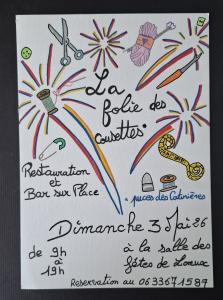 La
folie des
cousettes*
Restauration
et
Bar sur Place
* puces des Couturières
Dimanche 3 Mai 26
de 9h
à
19h
à la salle des
fêtes de
Reservation au 0633671589